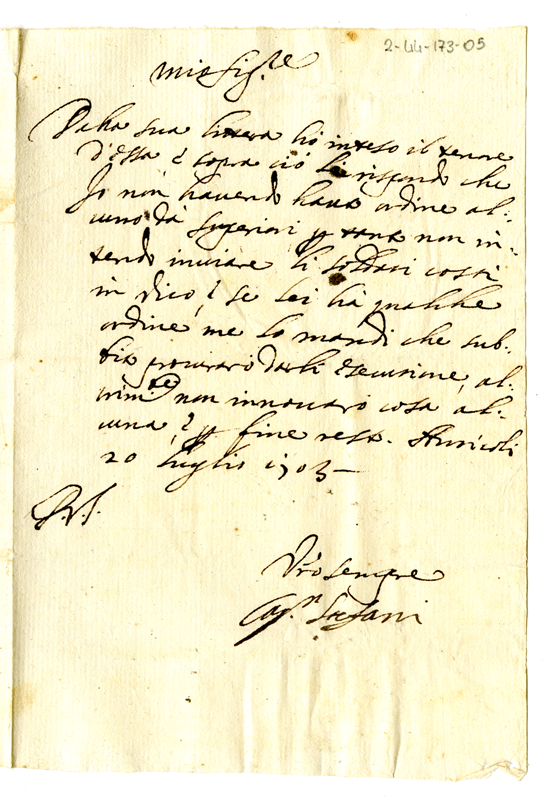 2-44-173-05
Mio Sig.re
Dalla sua lettera hò inteso il tenore
d'essa è sopra ciò li rispondo che
Io non havendo hauto ordine al-
cuno da Superiori p tanto non in-
tendo inviare li soldati costì
in Vico, è se Lei hà qualche
ordine me lo mandi che sub-
bito procurarò darli esecuzione, al-
trim.te non innovarò cosa al-
cuna, è p fine resto.
20 Luglio 1703
D.V.S.
Vro sempre
Cap.n